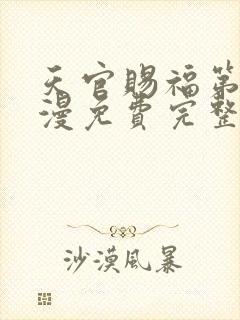 天官賜福第
漫免費完整
沙漠風暴